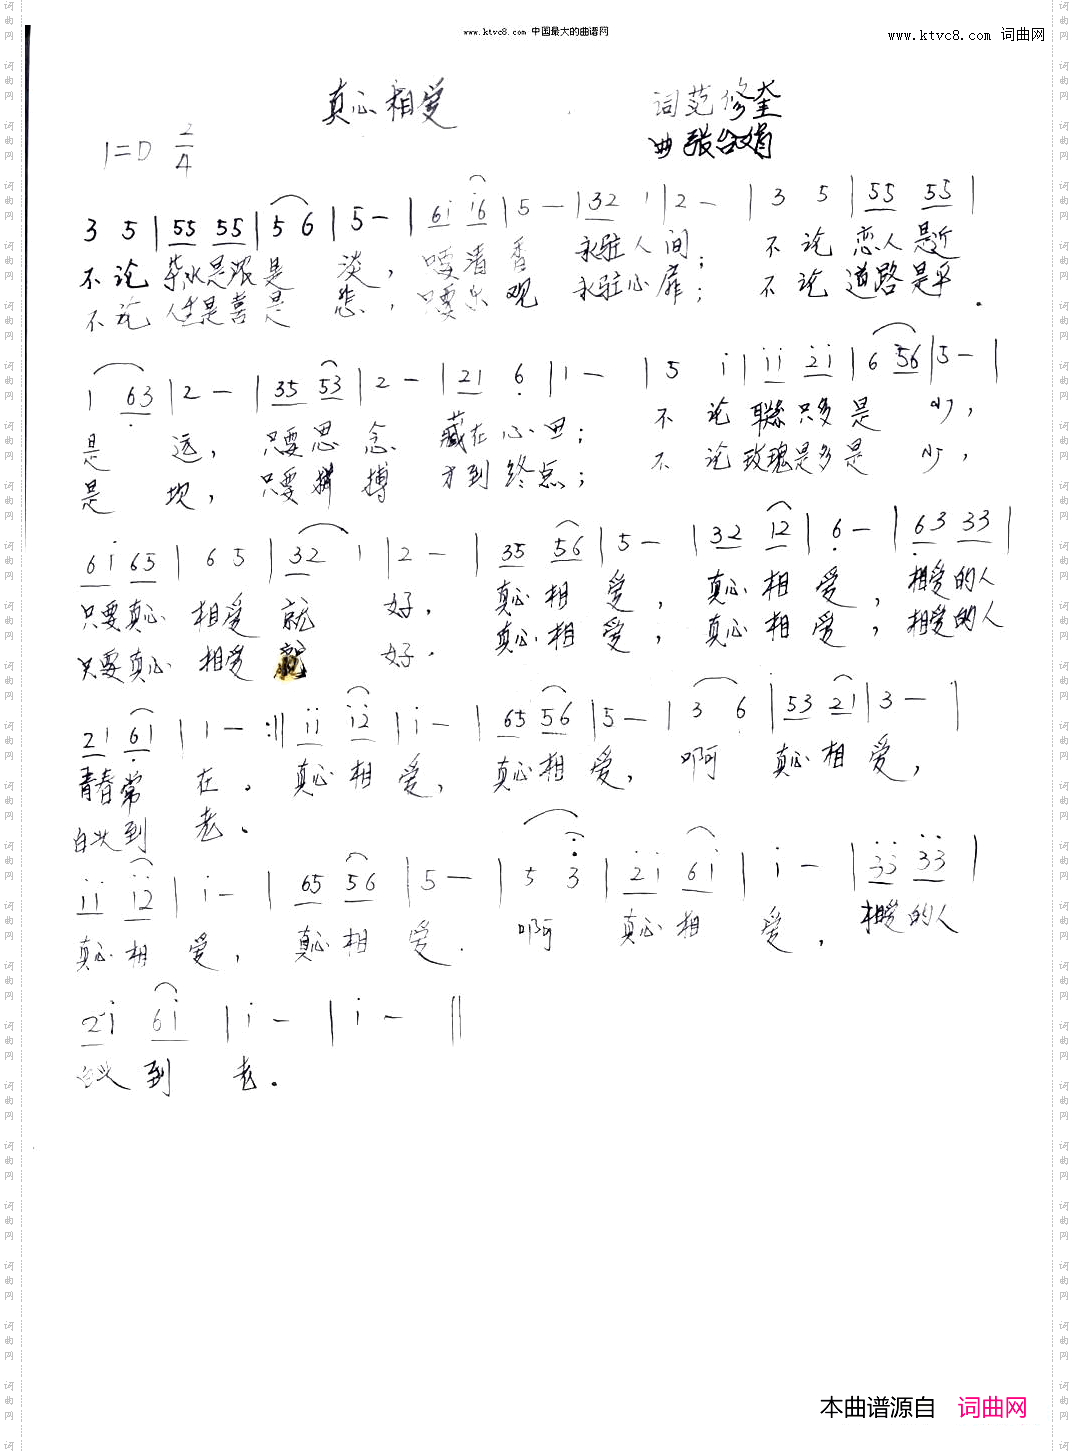 www.ktvc8.com 中国最大的曲谱网
www.ktvc8.com 词曲网
真心相爱
词 范修奎
1=D 2/4
曲 张
3 5 | 55 55 | 5 6 | 5 - | 6i i6 | 5 - | 32 1 | 2 - | 3 5 | 55 55 |
不论茶水是浓是 淡, 只要清香 永驻人间; 不论恋人是近
不论人生是喜是 悲, 只要乐观 永驻心扉; 不论道路是平.
1 63 | 2 - | 35 53 | 2 - | 21 6 | 1 - | 5 i | ii 2i | 6 56 | 5 - |
是 远, 只要思念 藏在心里; 不论联系多是 少,
是 坎, 只要拼搏 才到终点; 不论玫瑰是多是 少,
6i 65 | 6 5 | 32 1 | 2 - | 35 56 | 5 - | 32 12 | 6 - | 63 33 |
只要真心 相爱就 好, 真心相 爱, 真心相 爱, 相爱的人
只要真心 相爱就 好. 真心相 爱, 真心相 爱, 相爱的人
21 61 | 1 - :|| ii i2 | i - | 65 56 | 5 - | 3 6 | 53 21 | 3 - |
青春常 在. 真心相 爱, 真心相 爱, 啊 真心相 爱,
白头到 老.
ii i2 | i - | 65 56 | 5 - | 5 3 | 2i 6i | i - | 33 33 |
真心相 爱, 真心相 爱. 啊 真心相 爱, 相爱的人
2i 6i | i - | i - ||
白头到 老.
本曲谱源自 词曲网